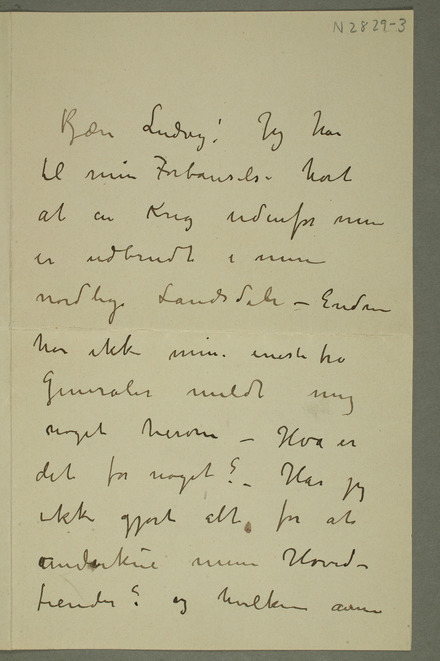 N 2829-3
Kjære Ludvig! Jeg har
til min Forbauselse hørt
at en Krig udenfor min
er udbrudt i mine
nordlige Landsdele – Endnu
har ikke mine
Generaler meldt mig
noget herom – Hva er
det for noget? – Har jeg
ikke gjort alt for at
undertrykke mine Hoved-
fiender? og hvilken